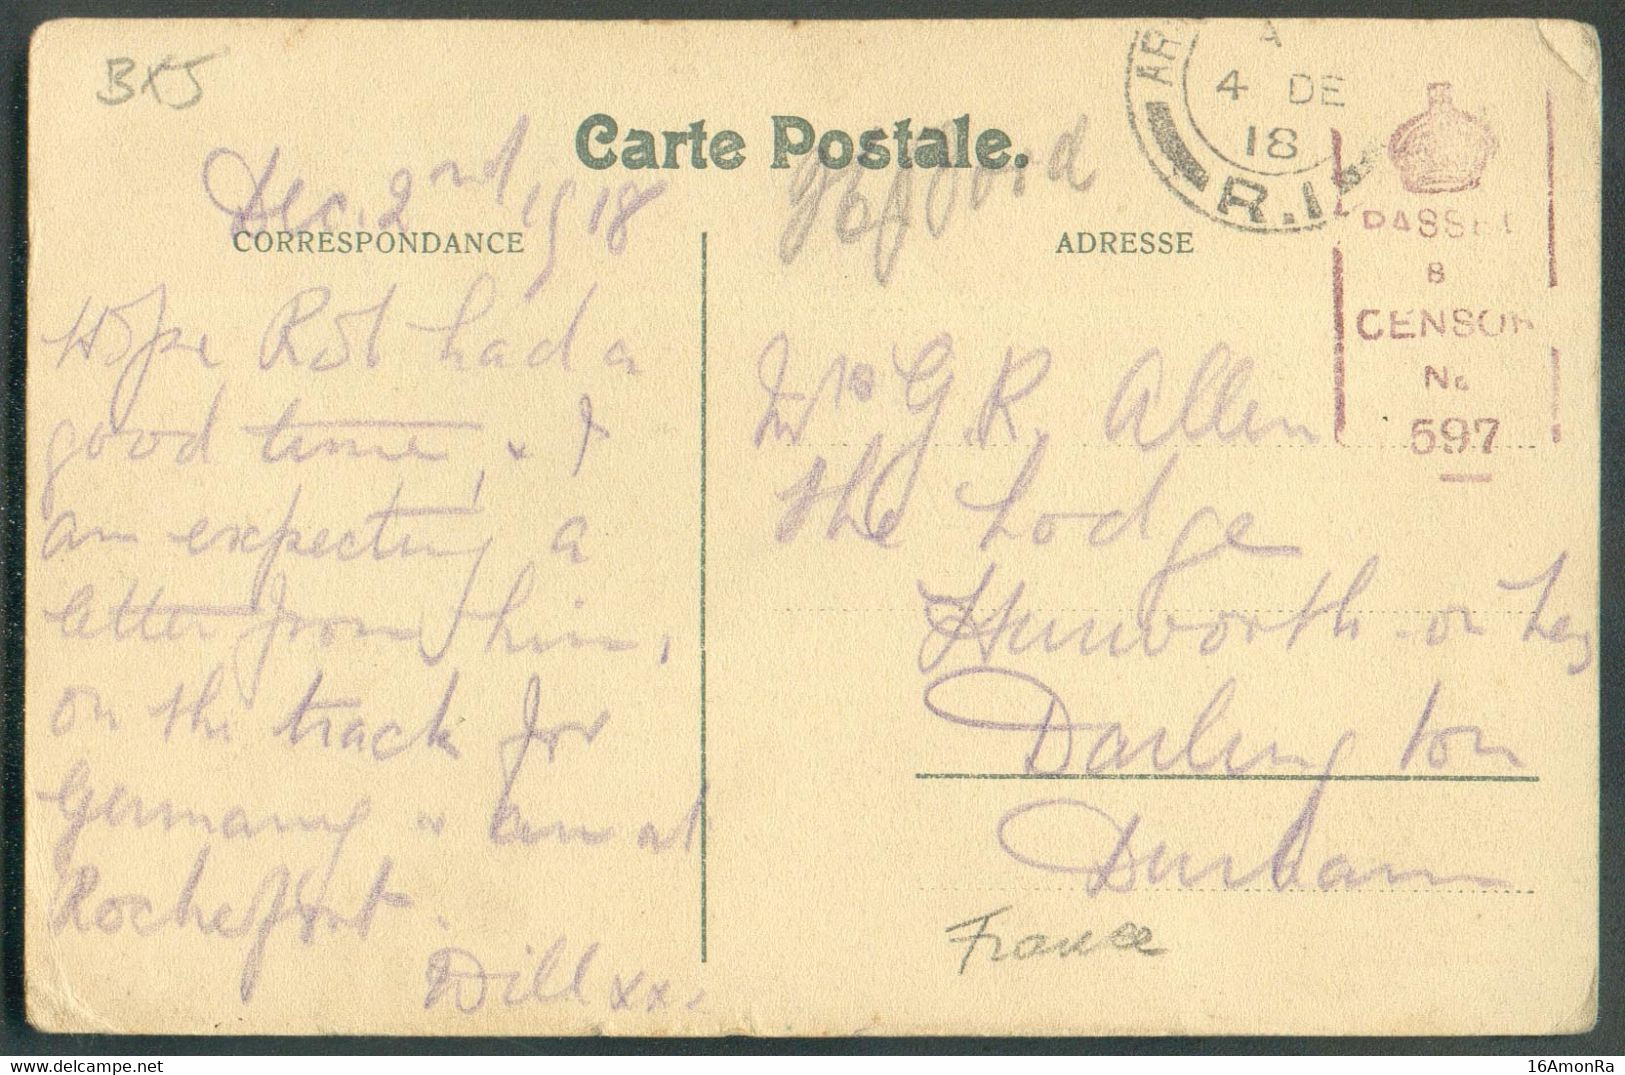 BXJ
Carte Postale.
Dec. 2nd 1918
CORRESPONDANCE
Hope Rob had a
good time, & I
am expecting a
letter from him,
on the track for
Germany & am at
Rochefort.
Will xx.
ADRESSE
Mrs G. R. Allen
The Lodge
Hurworth-on Tees
Darlington
Durham
France
AR
A
4 DE
18
R.
PASSED
B
CENSOR
No
597
delcampe.net
16AmonRa